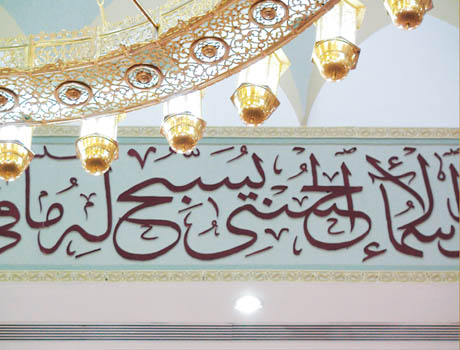 الأسماء الحسنى يسبح له ما في